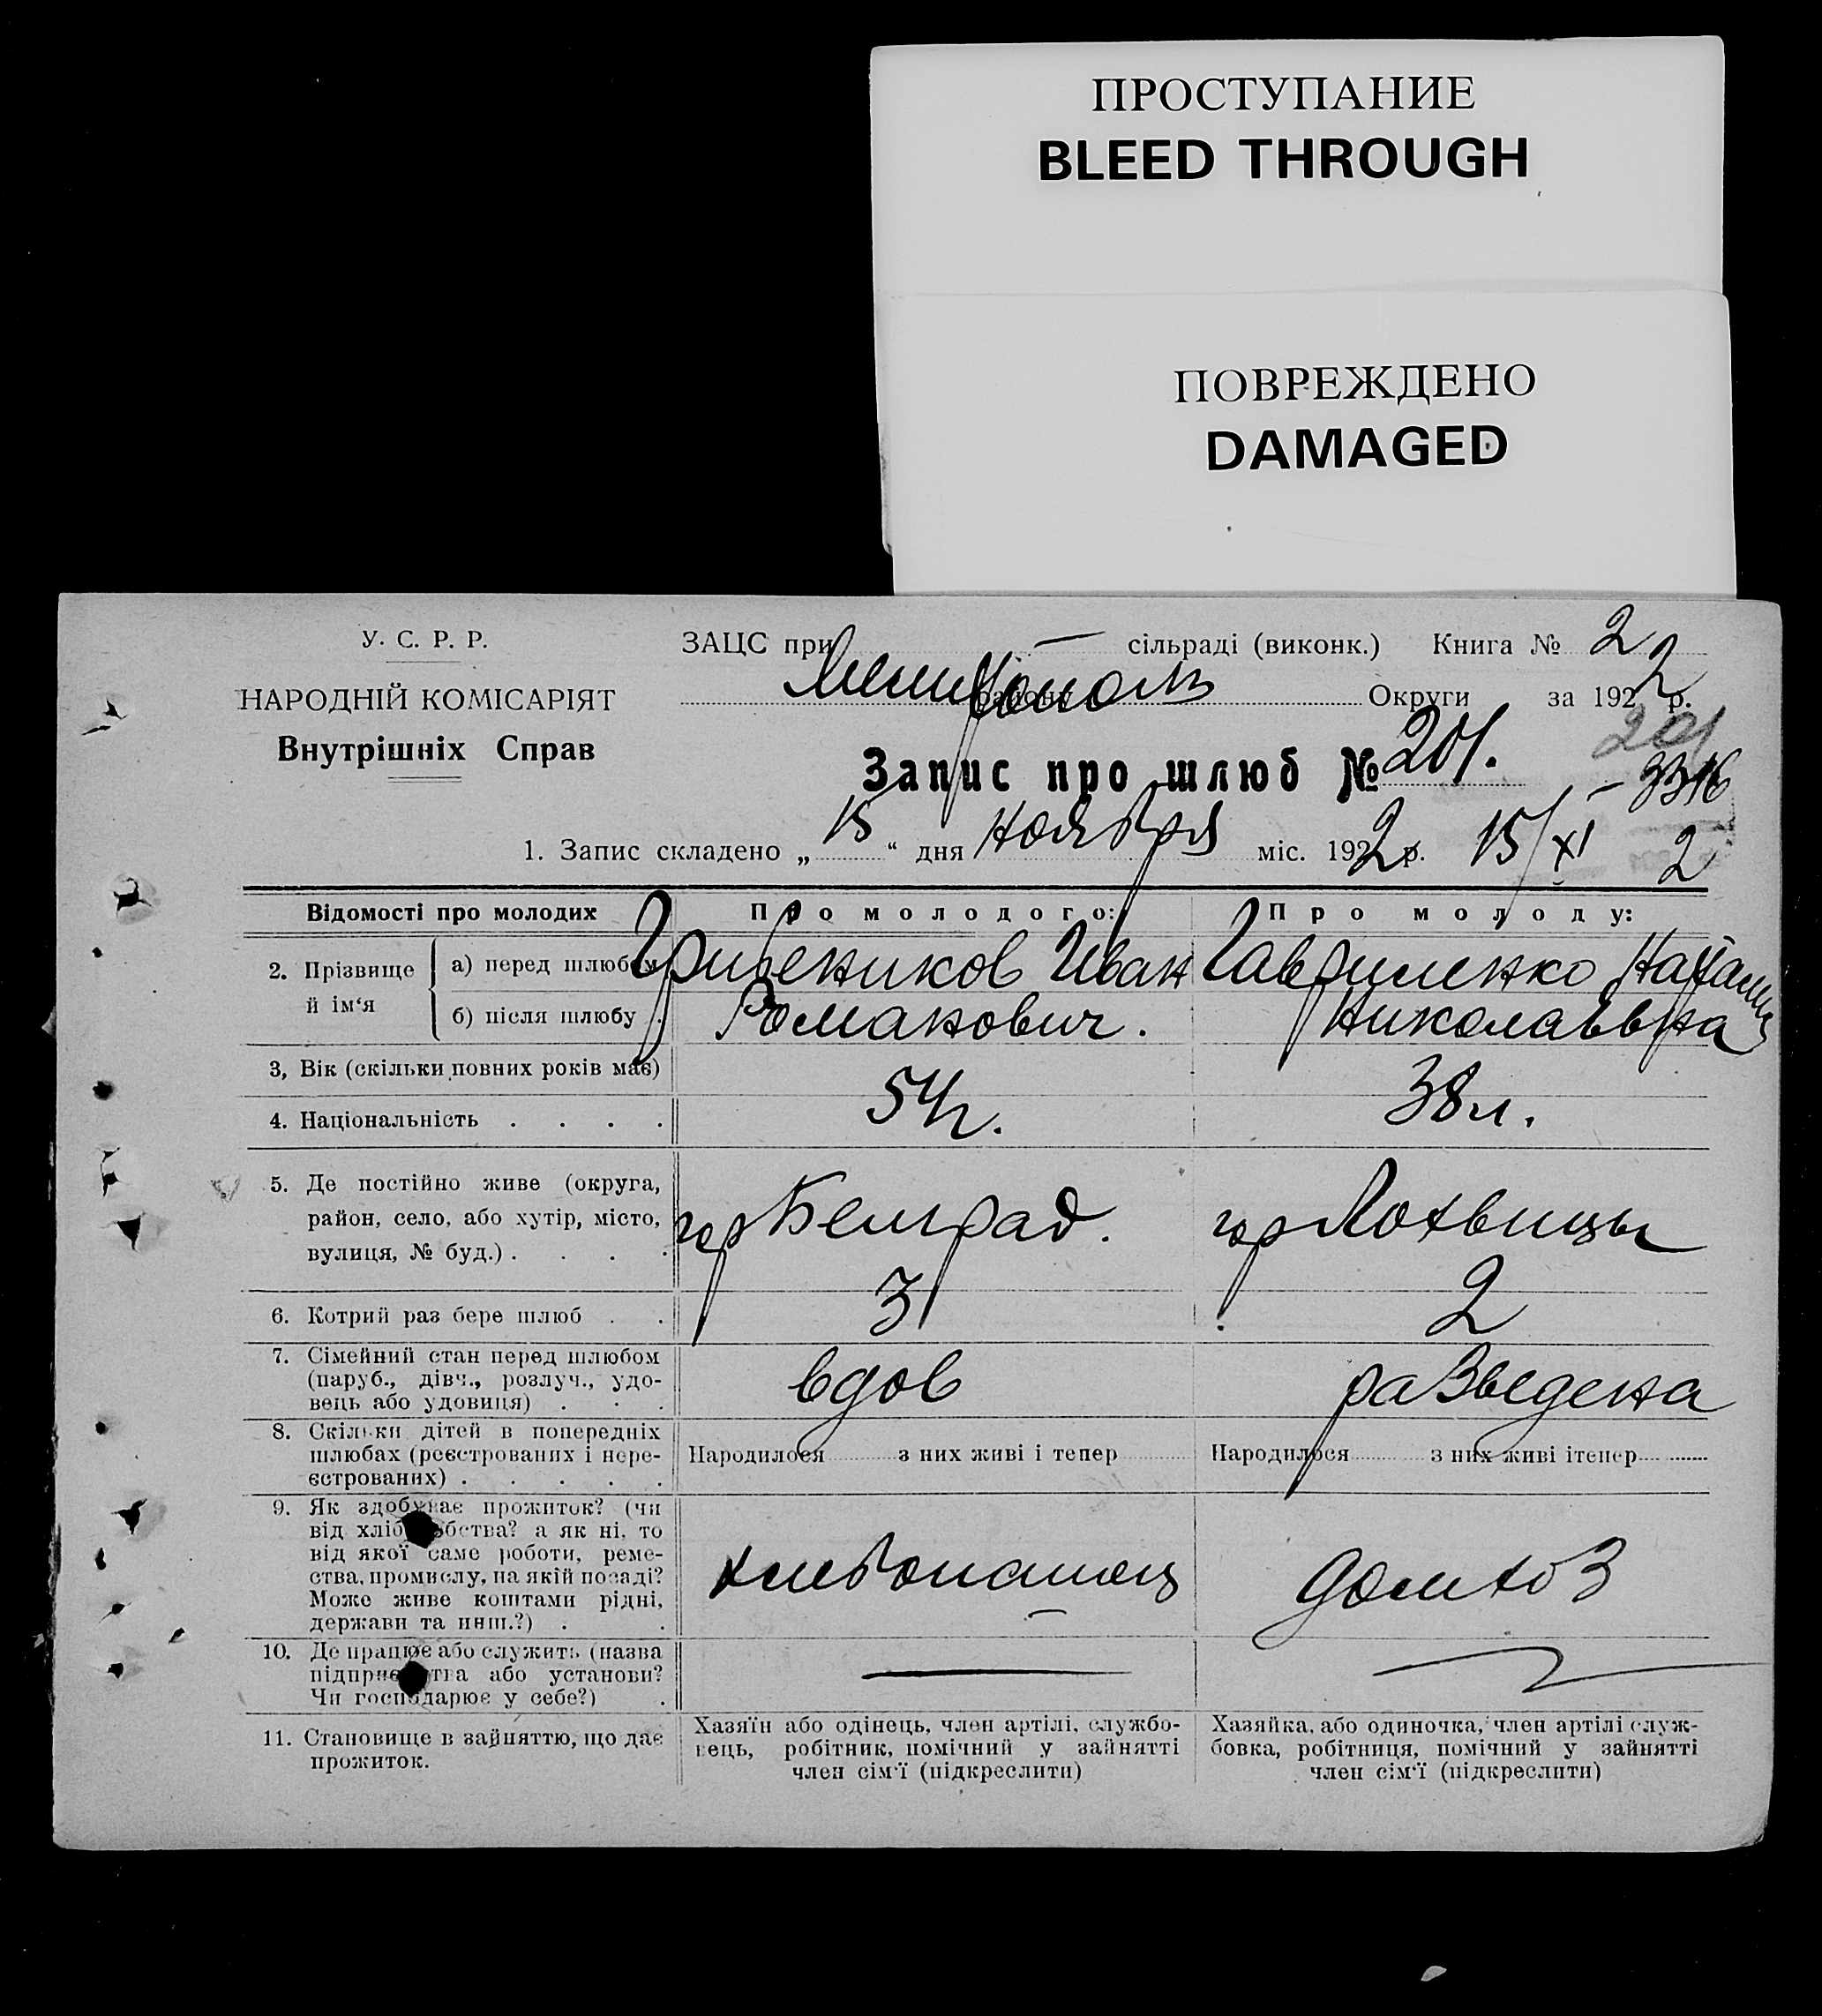 ПРОСТУПАНИЕ
BLEED THROUGH
ПОВРЕЖДЕНО
DAMAGED
У. С. Р. Р.
НАРОДНІЙ КОМІСАРІЯТ
Внутрішніх Справ
ЗАЦС при — сільраді (виконк.) Книга № 2
Мелитополь району Округи за 1922 р.
201
Запис про шлюб № 201.
1. Запис складено „ 15 “ дня ноября міс. 1922 р. 15/XI 2
Відомості про молодих Про молодого: Про молоду:
2. Прізвище й ім‘я
а) перед шлюбом Иван Гавриленко
б) після шлюбу . Романович. Николаевна
3, Вік (скільки повних років має)
54 г. 38 л.
4. Національність . . . .
5. Де постійно живе (округа,
район, село, або хутір, місто,
вулиця, № буд.) . . . .
гор Белград. гор Лохвицы
6. Котрий раз бере шлюб . . 3 2
7. Сімейний стан перед шлюбом
(паруб., дівч., розлуч., удо-
вець або удовиця) . . .
вдов разведена
8. Скільки дітей в попередніх
шлюбах (реєстрованих і нере-
єстрованих) . . . . .
Народилося з них живі і тепер Народилося з них живі ітепер
9. Як здобуває прожиток? (чи
від хліборобства? а як ні, то
від якої саме роботи, реме-
ства, промислу, на якій посаді?
Може живе коштами рідні,
держави та инш.?) . .
хлебопашец домхоз
10. Де працює або служить (назва
підприємства або установи?
Чи господарює у себе?) .
11. Становище в зайняттю, що дає
прожиток.
Хазяїн або одінець, член артілі, службо-
вець, робітник, помічний у зайнятті
член сім‘ї (підкреслити)
Хазяйка, або одиночка, член артілі служ-
бовка, робітниця, помічний у зайнятті
член сім‘ї (підкреслити)